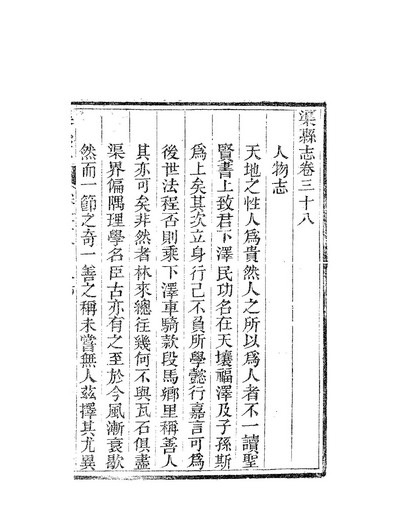 渠縣志卷三十八
人物志
天地之性人爲貴然人之所以爲人者不一讀聖
賢書上致君下澤民功名在天壤福澤及子孫斯
爲上矣其次立身行己不負所學懿行嘉言可爲
後世法程否則乘下澤車騎款段馬鄉里稱善人
其亦可矣非然者林來總往幾何不與瓦石俱盡
渠界偏隅理學名臣古亦有之至於今風漸衰歇
然而一節之奇一善之稱未嘗無人茲擇其尤異